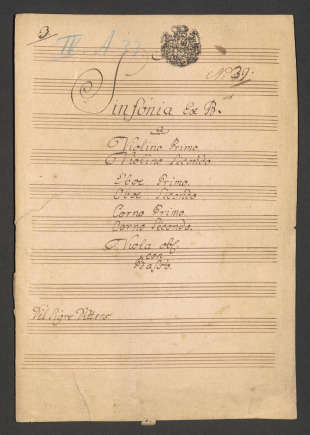 3.
IV A 33
No. 39.
Sinfónia Ex B.
a
Violino Primo.
Violino Secondo.
Oboe Primo.
Oboe Secondo
Corno Primo.
Corno Secondo.
Viola obl.
con
Basso.
Del Sigre Ditters